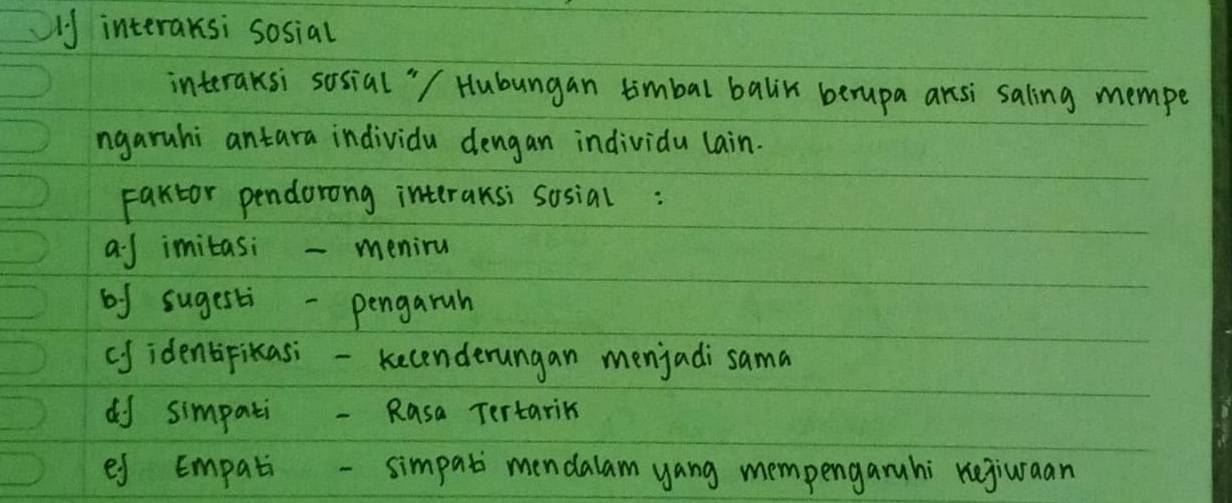 1.) interaksi sosial
interaksi sosial "/ Hubungan timbal balik berupa aksi saling mempe
ngaruhi antara individu dengan individu lain.
Faktor pendorong interaksi sosial :
a.) imitasi - meniru
b.) sugesti - pengaruh
c.) identifikasi - kecenderungan menjadi sama
d.) Simpati - Rasa Tertarik
e.) Empati - simpati mendalam yang mempengaruhi kejiwaan